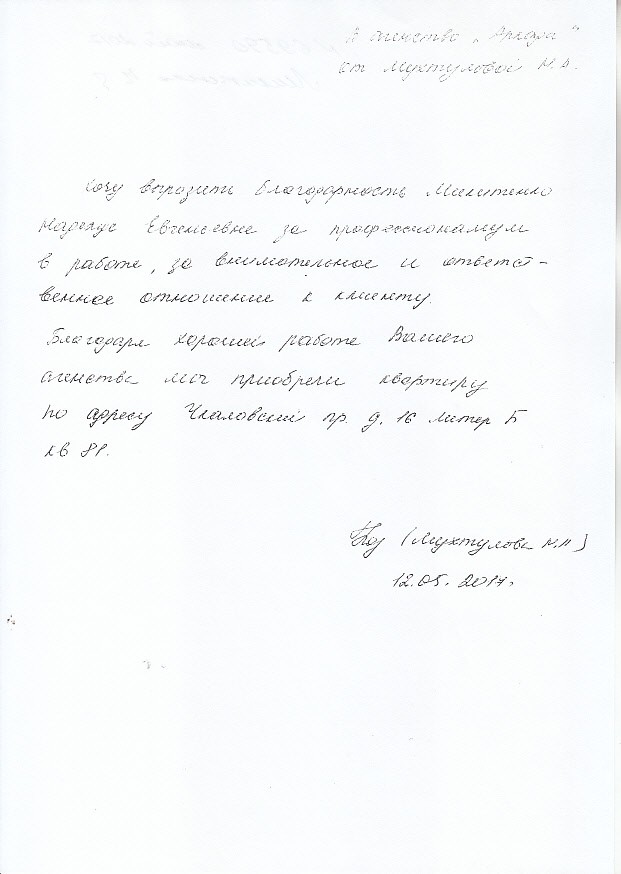 В агенство „Аркада"
от Мухтуловой Н.А.
Хочу выразить благодарность Микитенко
Надежде Евгеньевне за профессионализм
в работе, за внимательное и ответст-
венное отношение к клиенту.
Благодаря хорошей работе Вашего
агенства мы приобрели квартиру
по адресу Чкаловский пр. д. 16 литер Б
кв 81.
(Мухтулова Н.А)
12.05.2017г.